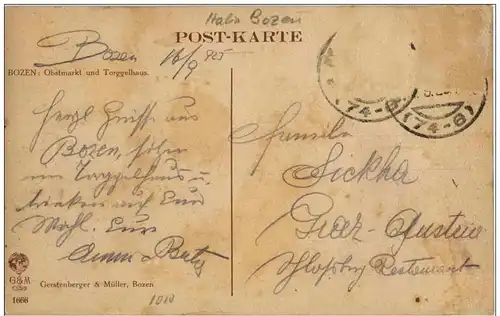 Italien Bozen
POST-KARTE
Bozen 16/9 925
BOZEN: Obstmarkt und Torggelhaus.
Herzl Grüsse aus
Bozen, sitzen
im Torggelhaus u.
trinken auf Euer
Wohl. Eure
Familie
Sickha
Graz-Austria
Schlossberg Restaurant
(74-8)
(74-8)
G&M
Gerstenberger & Müller, Bozen
1666